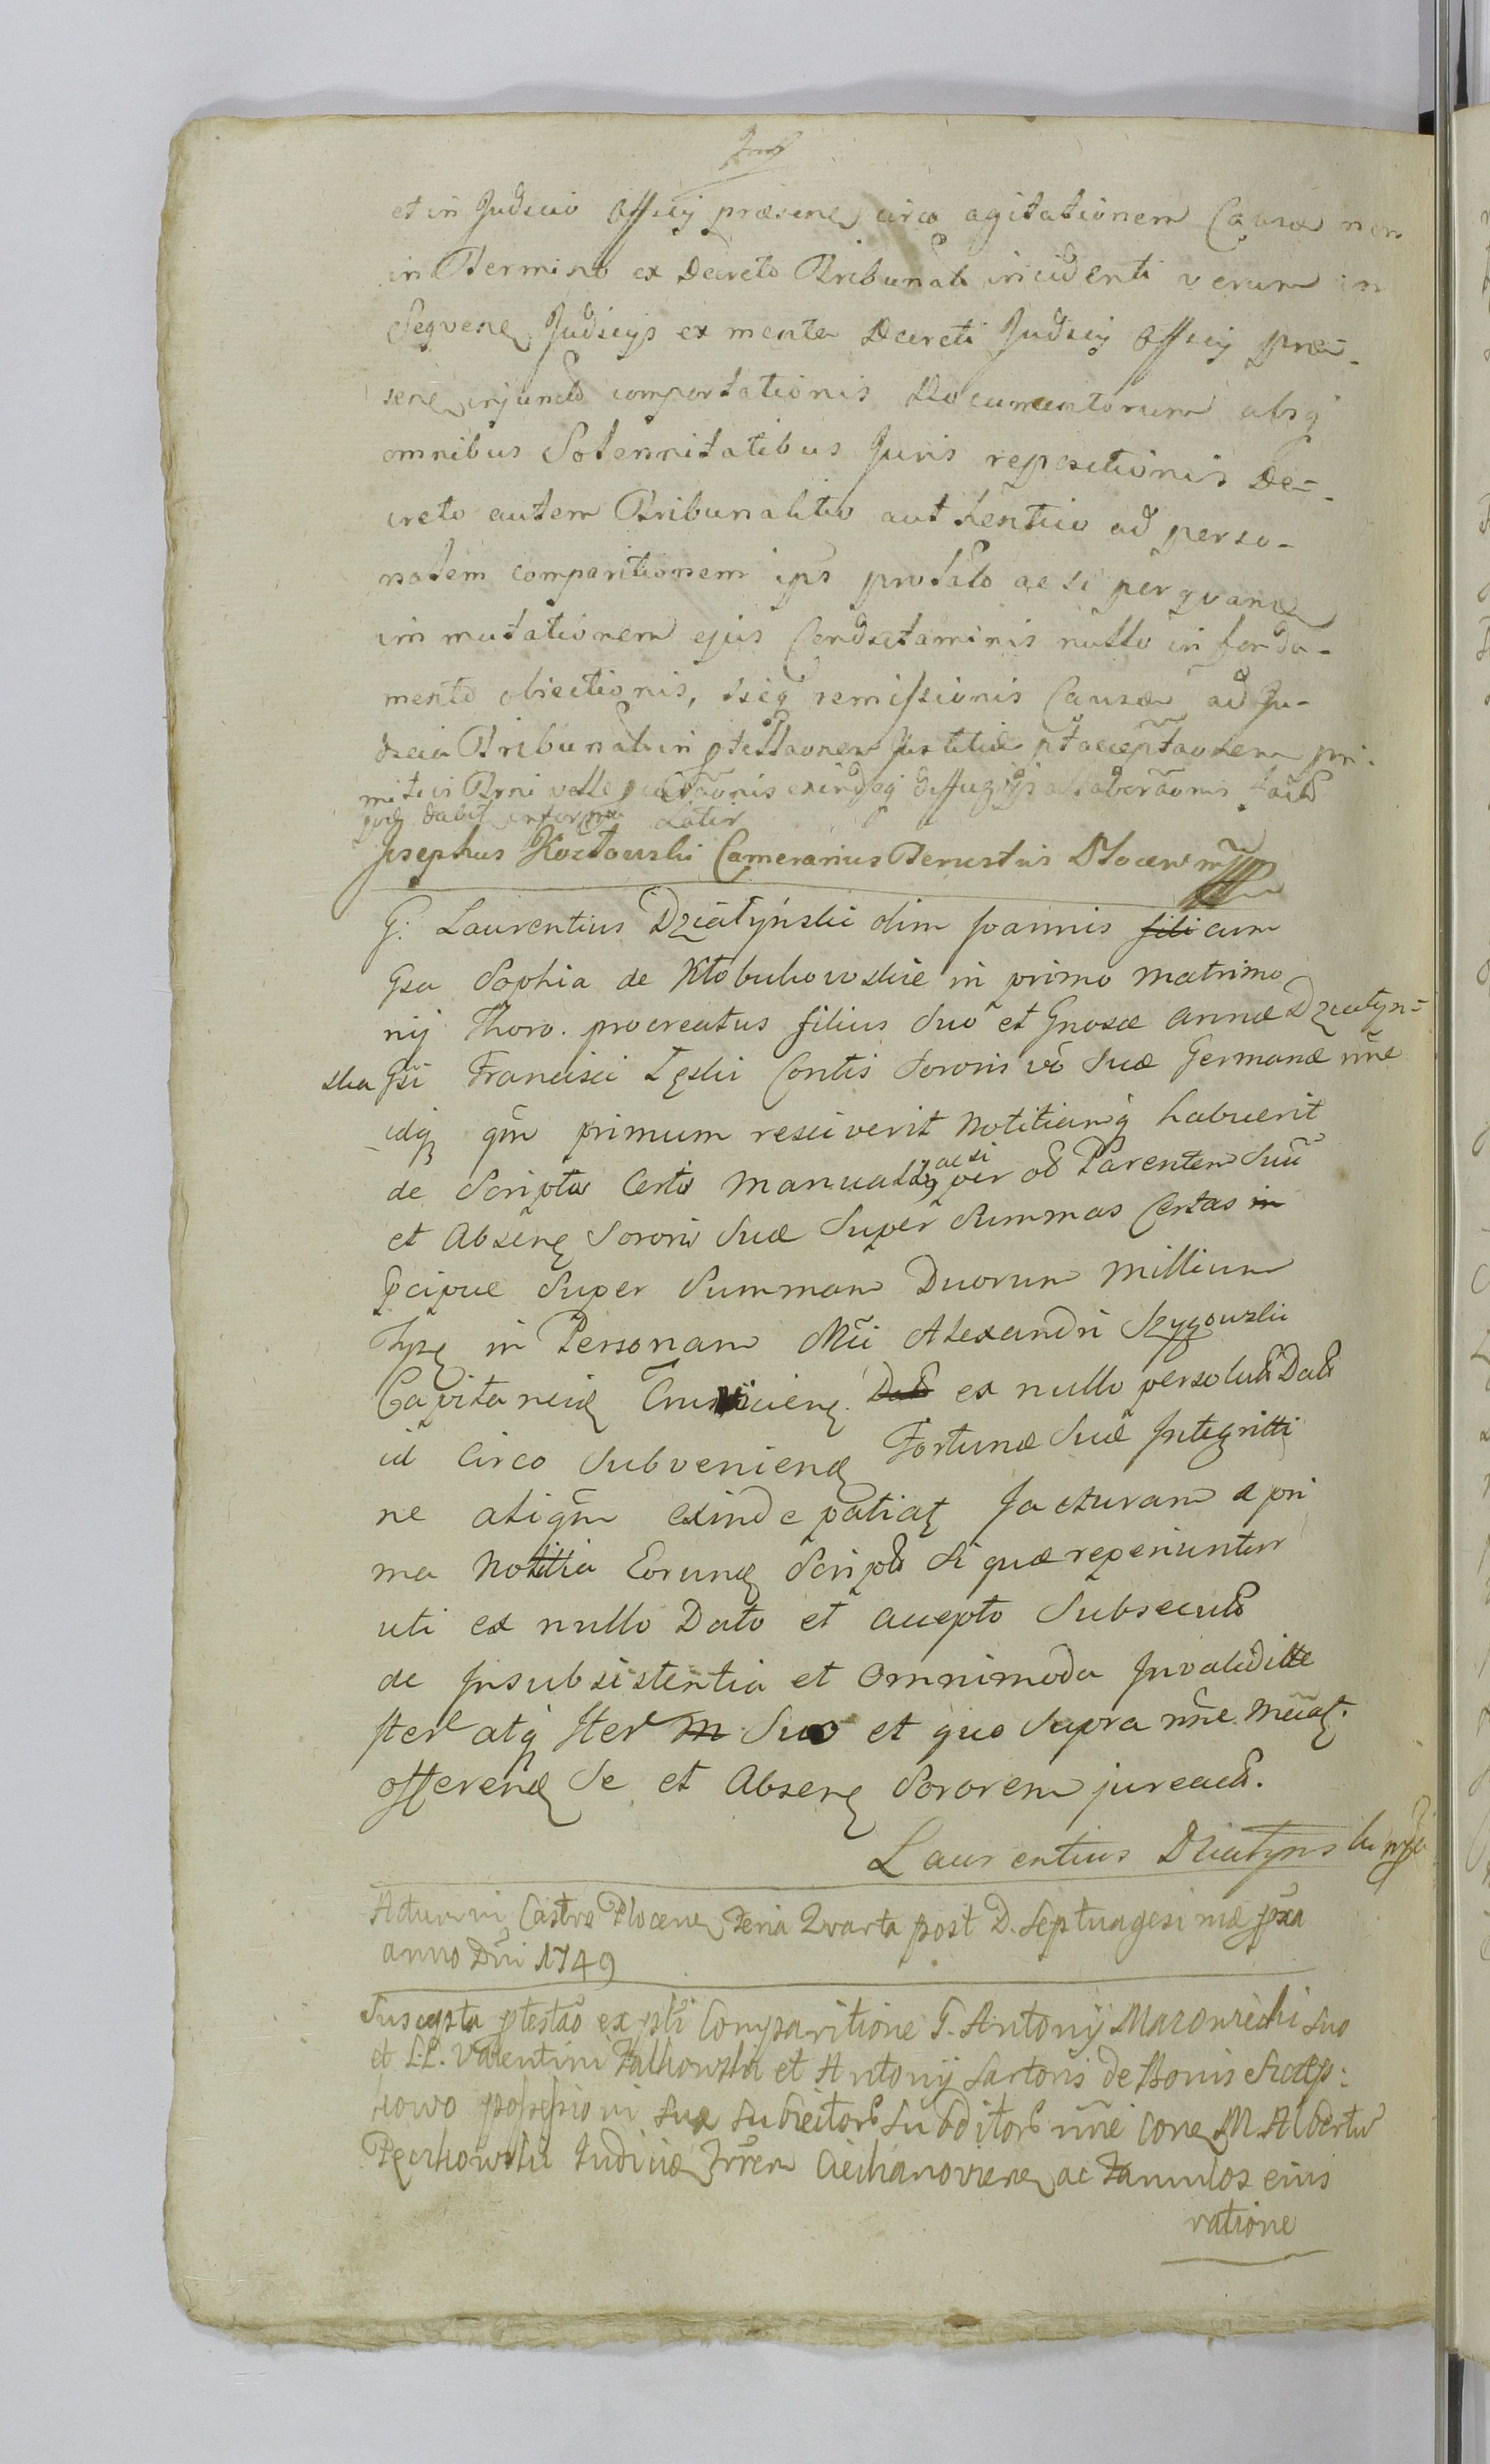 et in Judicio Officij præsenẽ circa agitationem Causæ non
in Termino ex Decreto Tribunali incidenti verum in
Seqvenẽ Judicijs ex mente Decreti Judicij Officij præ-
senẽ injuncto comportationis Documentorum absq
omnibus Solennitatibus Juris repositionis De-
creto autem Tribunalitio authentico ad perso-
nalem comparitionem ips prolato ac si per qvam
immutationem ejus Condictaminis nullo in fonda-
mento obiectionis, sicq remissionis Causæ ad Ju-
dicia Tribunal in ptestaonem Justitiæ ptacceptaonem pri-
mitivi Trni velle
Josephus Kozłowski Camerarius Terrestris Plocen mpp
G: Laurentius Działyński olim Joannis fili cum
Gsa Sophia de Kłobukowskie in primo matrimo
nij Thoro. procreatus filius Suo et Gnosæ Annæ Działyn-
ska Gsi Francisci Łęski Contis Sororis vo Suæ Germanæ nne
idq qm primum resciverit Notitiamq habuerit
de Scripto Certo Manuali ac si per od Parentem Suũ
et Absenẽ Sororis Suæ Super Summas Certas in
Pcipue Super Summam Duorum Millium
in Personam Mci Alexandri Szygowski
Capitanei Dato ex nullo persoluto Dato
id Circo Subveniend Fortunæ Suæ Integritti
ne aliqm exinde patiat Jacturam a pri
ma Notitia Eorund Script Si quæ reperiuntur
uti ex nullo Dato et accepto Subsecuto
de Insubsistentia et Omnimoda Invaliditte
Iter atq Iter m Suo et quo supra nne
offerend Se et Absenẽ Sororem jureact.
Laurentius Działynski mpp
Actum in Castro Plocenẽ Feria Qvarta post D. Septuagesimæ pxa
anno Dni 1749
Suscepta ptestao ex psti Comparitione G. Antonij Mazowiecki Suo
et L.L. Valentini Falkowski et Antonij Sartoris de Bonis
kowo possessioni suæ subiectorũ subditorũ nne conẽ M. Albertũ
Pęchowski Judicẽ Trrem Ciechanoviene ac Famulos eius
ratione